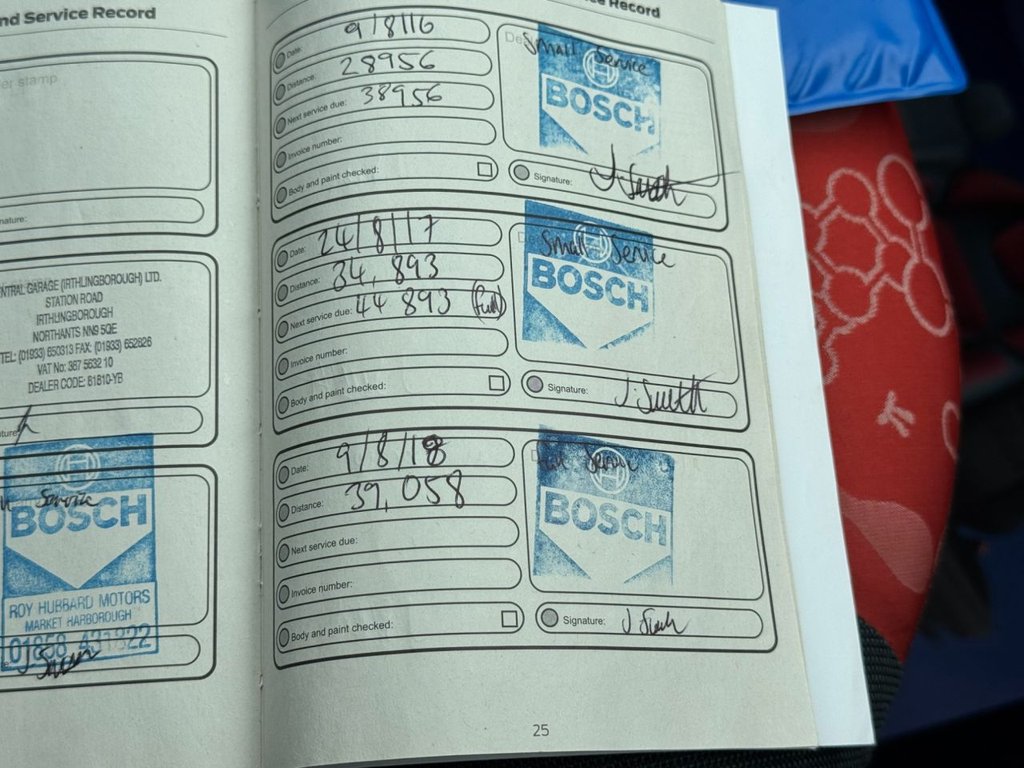 nd Service Record
er stamp
nature:
NTRAL GARAGE (IRTHLINGBOROUGH) LTD.
STATION ROAD
IRTHLINGBOROUGH
NORTHANTS NN9 5QE
TEL: (01933) 650313 FAX: (01933) 652626
VAT No: 367 5632 10
DEALER CODE: 81810-YB
ature:
Service
BOSCH
ROY HUBBARD MOTORS
MARKET HARBOROUGH
01858 431822
Record
Date: 9/8/16
Distance: 28956
Next service due: 38956
Invoice number:
Body and paint checked:
Small Service
BOSCH
Signature: J. Smith
Date: 24/8/17
Distance: 34,893
Next service due: 44893 (Full)
Invoice number:
Body and paint checked:
Small Service
BOSCH
Signature: J. Smith
Date: 9/8/18
Distance: 39,058
Next service due:
Invoice number:
Body and paint checked:
BOSCH
Signature: J Smith
25